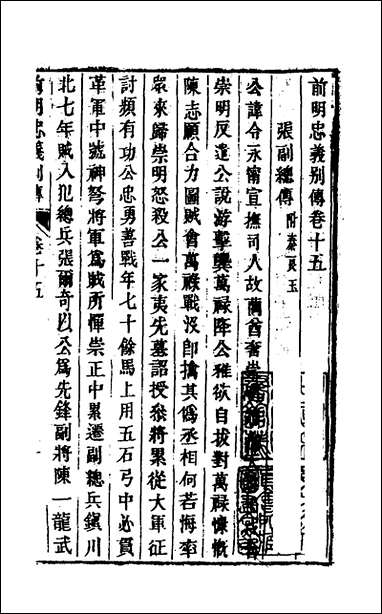 前明忠義別傳卷十五
張副總傳附秦良玉
公諱令永甯宣撫司人故藺酋奢崇
崇明反遣公說游擊龔萬祿降公雅欲自拔對萬祿慷慨
陳志願合力圖賊會萬祿戰沒即擒其僞丞相何若海率
眾來歸崇明怒殺公一家夷先墓詔授參將累從大軍征
討頻有功公忠勇善戰年七十餘馬上用五石弓中必貫
革軍中號神弩將軍爲賊所憚崇正中累遷副總兵鎭川
北七年賊入犯總兵張爾奇以公爲先鋒副將陳一龍武
前明忠義別傳 卷十五